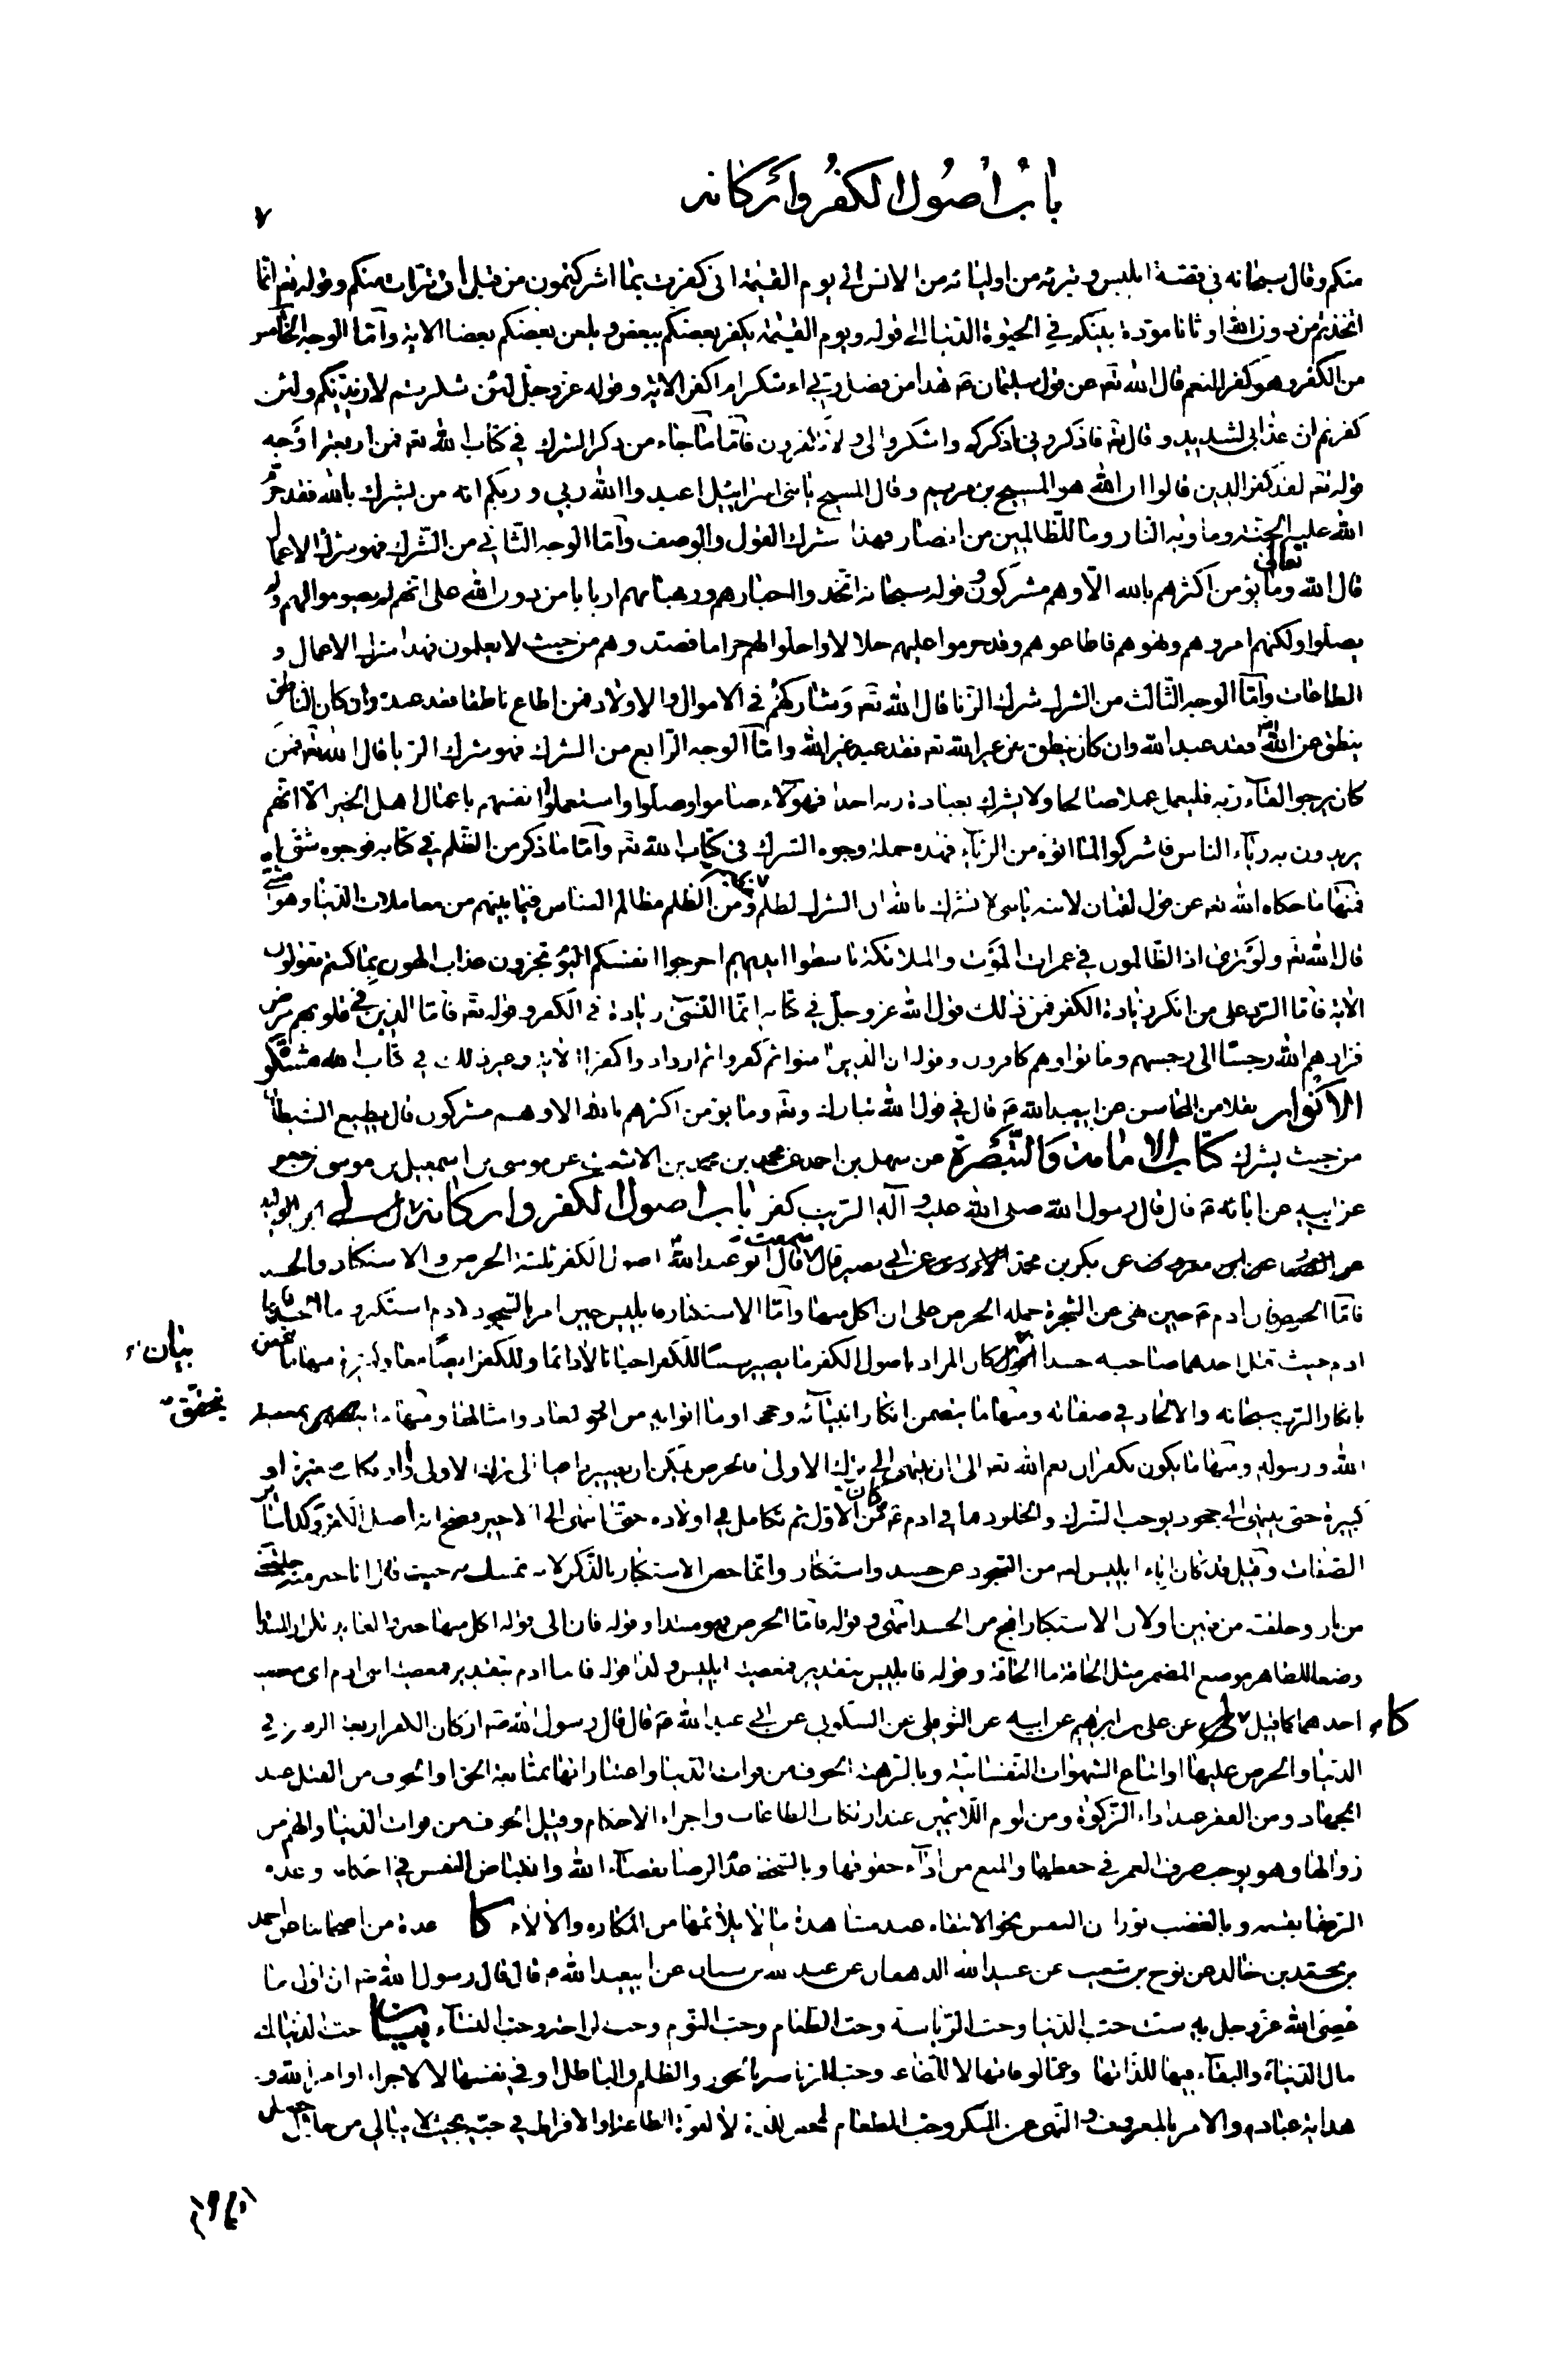 باب اصول الكفر واركانه
٧
منكم وقال سبحانه في قصة ابليس وتبرئه من اوليائه من الانس الى يوم القيمة انى كفرت بما اشركتمون من قبل ان تبرات منكم وقوله تعم انما
اتخذتم من دون الله اوثانا مودة بينكم في الحيوة الدنيا الى قوله ويوم القيمة يكفر بعضكم ببعض ويلعن بعضكم بعضا الاية وامّا الوجه الخامس
من الكفر وهو كفر النعم قال الله تعم عن قول سليمان ع هذا من فضل ربي ء اشكر ام اكفر الاية وقوله عز وجل لئن شكرتم لازيدنكم ولئن
كفرتم ان عذابي لشديد وقال تعم فاذكروني اذكركم واشكروا لي ولا تكفرون فامّا ما جاء من ذكر الشرك في كتاب الله تعم فمن اربعة اوجه
قوله تعم لقد كفر الذين قالوا ان الله هو المسيح بن مريم وقال المسيح يا بنى اسرائيل اعبدوا الله ربي وربكم انه من يشرك بالله فقد حرّم
الله عليه الجنة وماويه النار وما للظالمين من انصار فهذا شرك القول والوصف وامّا الوجه الثاني من الشرك فهو شرك الاعمال
قال الله تعالى وما يؤمن اكثرهم بالله الّا وهم مشركون وقوله سبحانه اتخذوا احبارهم ورهبانهم اربابا من دون الله على انهم لم يصوموا لهم ولم
يصلوا ولكنهم امروهم ونهوهم فاطاعوهم وقد حرموا عليهم حلالا واحلوا لهم حراما فعبدوهم من حيث لا يعلمون فهذا شرك الاعمال و
الطاعات وامّا الوجه الثالث من الشرك شرك الزنا قال الله تعم وشاركهم في الاموال والاولاد فمن اطاع ناطقا فقد عبده وان كان الناطق
ينطق عن الله تعم فقد عبد الله وان كان ينطق عن غير الله تعم فقد عبد غير الله وامّا الوجه الرابع من الشرك فهو شرك الريا قال الله تعم فمن
كان يرجوا لقاء ربه فليعمل عملا صالحا ولا يشرك بعبادة ربه احدا فهؤلاء صاموا وصلوا واستعملوا انفسهم باعمال اهل الخير الّا انهم
يريدون به رئاء الناس فاشركوا لما اتوه من الرياء فهذه جملة وجوه الشرك في كتاب الله تعم وامّا ما ذكر من الظلم في كتابه فوجوه شتى
فمنها ما حكاه الله تعم عن قول لقمان لابنه يا بنى لا تشرك بالله ان الشرك لظلم عظيم ومن الظلم مظالم الناس فيما بينهم من معاملات الدنيا وهو شتى
قال الله تعم ولو ترى اذ الظالمون في غمرات الموت والملائكة باسطوا ايديهم اخرجوا انفسكم اليوم تجزون عذاب الهون بما كنتم تقولون
الاية فامّا الرد على من انكر زيادة الكفر فمن ذلك قول الله عز وجل في كتابه انما النسئ زيادة في الكفر وقوله تعم فامّا الذين في قلوبهم مرض
فزادهم الله رجسا الى رجسهم وماتوا وهم كافرون وقوله ان الذين امنوا ثم كفروا ثم ازدادوا كفرا الاية وغير ذلك في كتاب الله مشكو
الانوار نقلا من المحاسن عن ابيعبد الله ع قال في قول الله تبارك وتعم وما يؤمن اكثرهم بالله الا وهم مشركون قال يطيع الشيطان
من حيث يشرك كتاب الامامة والتبصرة عن سهل بن احمد عن محمد بن محمد بن الاشعث عن موسى بن اسمعيل بن موسى بن جعفر
عن ابيه عن ابائه ع قال قال رسول الله صلى الله عليه وآله الريب كفر باب اصول الكفر واركانه
بكر بن محمد الازدي عن ابي بصير قال قال ابو عبد الله ع اصول الكفر ثلثة الحرص والاستكبار والحسد
فامّا الحرص فان ادم ع حين نهى عن الشجرة حمله الحرص على ان اكل منها وامّا الاستكبار فابليس حين امر بالسجود لادم استكبر وما الحسد فابنا
ادم حيث قتل احدهما صاحبه حسدا بيان كان المراد باصول الكفر ما يصير سببا للكفر احيانا لا دائما وللكفر ايضا معان كثيرة منها ما يتحقق
بانكار الرب سبحانه والالحاد في صفاته ومنها ما يتضمن انكار انبيائه وحججه او ما اتوا به من المعاد وامثالها ومنها ما يتحقق بمعصية
الله ورسوله ومنها ما يكون بكفران نعم الله تعم الى ان ينتهى الى ترك الاولى فالحرص يمكن ان يصير داعيا الى ترك الاولى او ارتكاب صغيرة او
كبيرة حتى ينتهى الى جحود يوجب الشرك والخلود فما في ادم ع كان من الاول ثم تكامل في اولاده حتى انتهى الى الاخير فصح انه اصل الكفر وكذا سائر
الصفات وقيل قد كان اباء ابليس لعنه من السجود عن حسد واستكبار وانما خص الاستكبار بالذكر لانه تمسك به حيث قال انا خير منه خلقتنى
من نار وخلقته من طين او لان الاستكبار اقبح من الحسد انتهى وقوله فامّا الحرص فهو مبتدا وقوله فان الى قوله اكل منها خبره والعايد تكرار المبتدا
وضعا للظاهر موضع المضمر مثل الحاقة ما الحاقة وقوله فابليس بتقدير فمعصية ابليس وكذا قوله فابنا ادم بتقدير فمعصية ابنى ادم اى معصية
احدهما كما قيل كا عن على بن ابراهيم عن ابيه عن النوفلي عن السكوني عن ابي عبد الله ع قال قال رسول الله ص اركان الكفر اربعة الرغبة في
الدنيا والحرص عليها او اتباع الشهوات النفسانية وبالرهبة الخوف من فوات الدنيا واعتباراتها بمتابعة الحق او الخوف من القتل عند
الجهاد ومن الفقر عند اداء الزكوة ومن لوم اللائمين عند ارتكاب الطاعات واجراء الاحكام وقيل الخوف من فوات الدنيا والهم من
زوالها وهو يوجب صرف العمر في حفظها والمنع من اداء حقوقها وبالسخط عدم الرضا بقضاء الله وانقباض النفس في احكامه وعدم
الرضا بقسمه وبالغضب ثوران النفس نحو الانتقام عند مشاهدة ما لا يلائمها من المكاره والآلام كا عدة من اصحابنا عن احمد
بن محمد بن خالد عن نوح بن شعيب عن عبد الله الدهقان عن عبد الله بن سنان عن ابيعبد الله ع قال قال رسول الله ص ان اول ما
عصى الله عز وجل به ست حب الدنيا وحب الرياسة وحب الطعام وحب النوم وحب الراحة وحب النساء بيان حب الدنيا اى
مال الدنيا والبقاء فيها للذاتها ومألوفاتها لا للطاعة وحب الرياسة بالجور والظلم والباطل او في نفسها لا لاجراء اوامر الله و
هداية عباده والامر بالمعروف والنهى عن المنكر وحب الطعام لمحض اللذة لا لقوة الطاعة او الافراط في حبه بحيث لا يبالي من حلال حصل